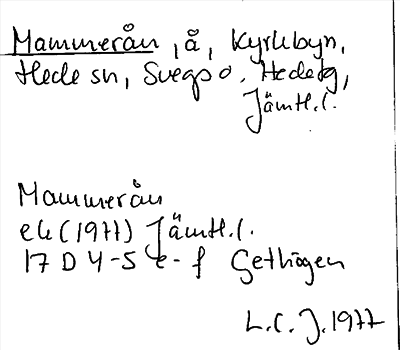 Mammerån, å, Kyrkbyn,
Hede sn, Svegs o. Hede tg,
Jämtl.l.
Mammerån
ek (1977) Jämtl.l.
17 D 4-5 e-f Gethögen
L.C.J. 1977